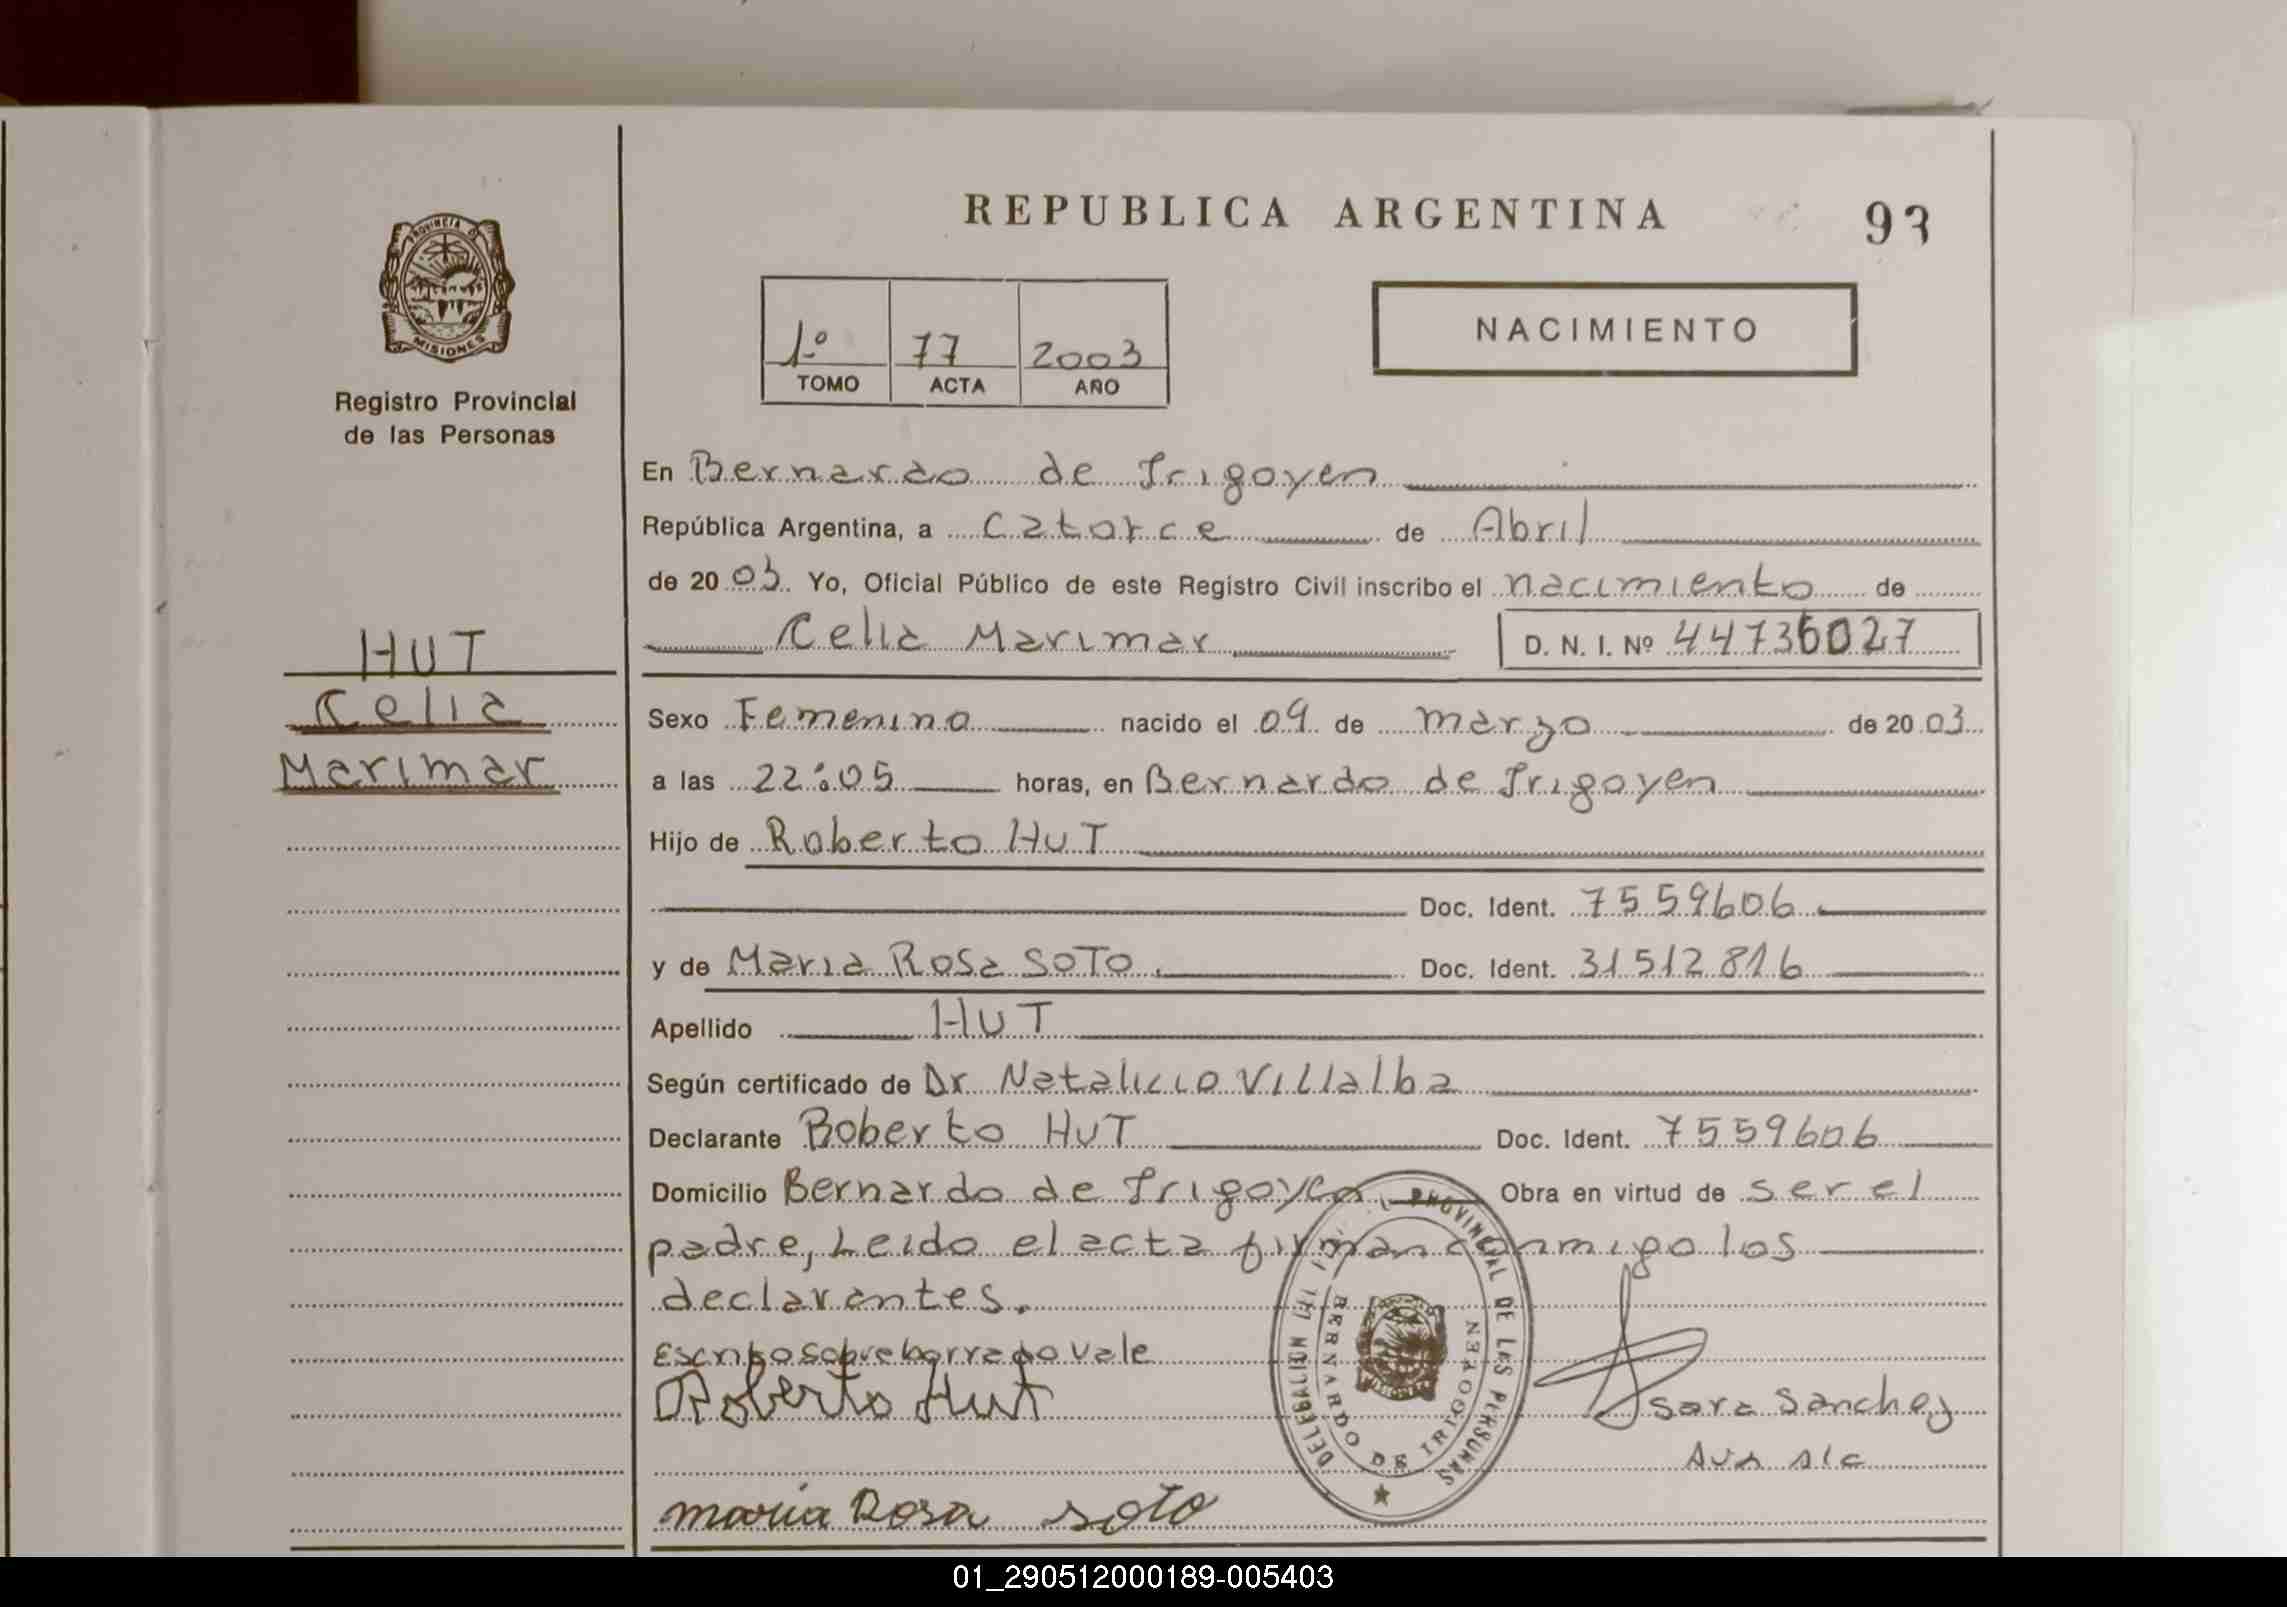 REPUBLICA ARGENTINA
93
PROVINCIA D MISIONES
Registro Provincial
de las Personas
1º 77 2003
TOMO ACTA AÑO
NACIMIENTO
En Bernardo de Irigoyen
República Argentina, a Catorce de Abril
de 20 03. Yo, Oficial Público de este Registro Civil inscribo el nacimiento de
Celia Marimar D. N. I. Nº 44736027
HUT
Celia
Marimar
Sexo Femenino nacido el 09 de marzo de 20 03
a las 22:05 horas, en Bernardo de Irigoyen
Hijo de Roberto HUT
Doc. Ident. 7559606
y de Maria Rosa SOTO. Doc. Ident. 31512816
Apellido HUT
Según certificado de Dr. Natalicio Villalba
Declarante Roberto HUT Doc. Ident. 7559606
Domicilio Bernardo de Irigoyen Obra en virtud de ser el
padre, Leido el acta firman conmigo los
declarantes.
Escrito sobre borrado vale
Roberto Hut
Sara Sanchez
maria Rosa soto
DELEGACION PROVINCIAL DE LAS PERSONAS
BERNARDO DE IRIGOYEN
01_290512000189-005403